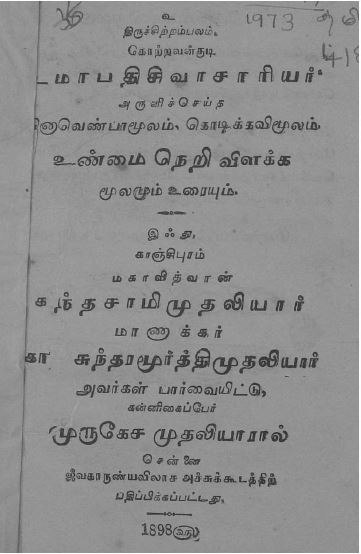 உ
1973
திருச்சிற்றம்பலம்.
கொற்றவன்குடி
மாபதிசிவாசாரியர்
அருளிச்செய்த
வினாவெண்பாமூலம், கொடிக்கவிமூலம்.
உண்மை நெறி விளக்க
மூலமும் உரையும்.
இஃது,
காஞ்சிபுரம்
மகாவித்வான்
தசாமிமுதலியார்
மாணாக்கர்
சுந்தரமூர்த்திமுதலியார்
அவர்கள் பார்வையிட்டு,
கன்னிகைப்பேர்
முருகேச முதலியாரால்
சென்னை
ஜீவகாருண்யவிலாச அச்சுக்கூடத்திற்
பதிப்பிக்கப்பட்டது.
1898